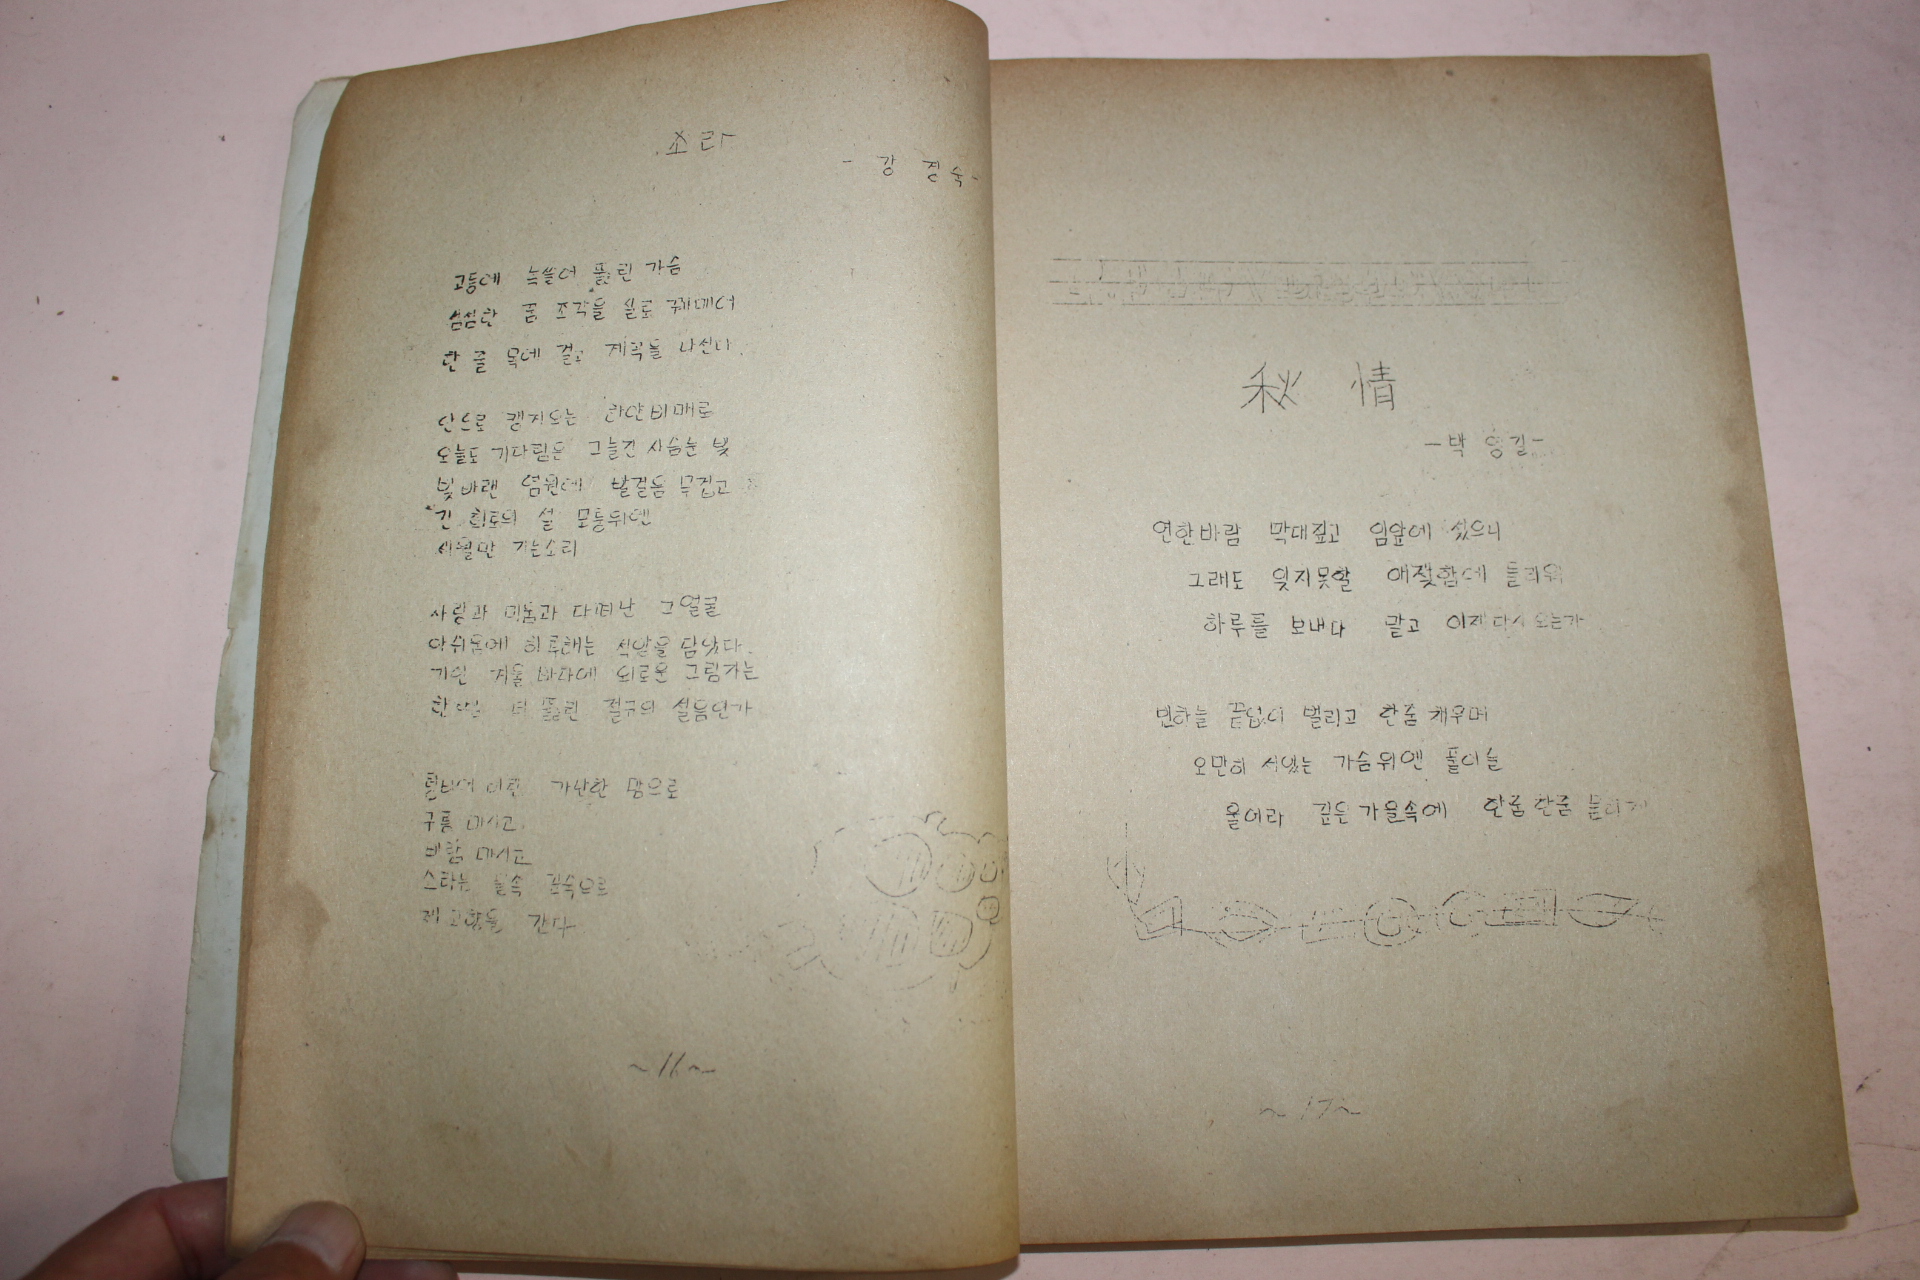 소라
- 강 진숙 -
고동에 녹쓸어 뚫린 가슴
섬섬한 꿈 조각을 실로 꿰메어
한 줄 목에 걸고 계곡을 나선다.
안으로 하얀
오늘도 기다림은 그늘진 빛
빛 바랜 염원에 발걸음 무겁고
긴 회로의 설 모퉁위엔
세월만 가는소리
사랑과 미움과 다떠난 그 얼굴
아쉬움에 석양을 담았다.
겨울 바다에 외로운 그림자는
한 더 뚫린 절구의 설음인가
가난한 맘으로
구름 마시고,
바람 마시고
물속 깊숙으로
제 고향을 간다
~16~
秋 情
- 박 영길 -
연한바람 막대짚고 임앞에 섰으니
그래도 잊지못할 애젖함에 들리워
하루를 보내다 말고 이제 다시 오는가
빈하늘 끝없이 벌리고 한줌 채우며
오만히 서있는 가슴위엔 풀이슬
올이라 깊은 가을속에 한줌 한줌
~17~